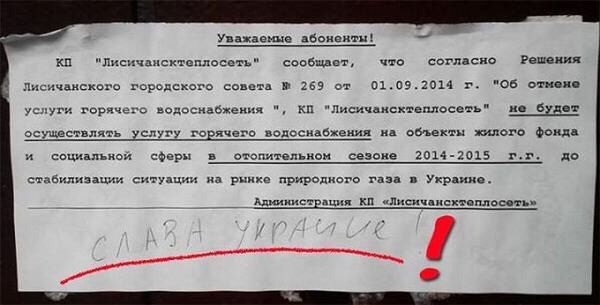 Уважаемые абоненты!
КП "Лисичансктеплосеть" сообщает, что согласно Решения
Лисичанского городского совета № 269 от 01.09.2014 г. "Об отмене
услуги горячего водоснабжения ", КП "Лисичансктеплосеть" не будет
осуществлять услугу горячего водоснабжения на объекты жилого фонда
и социальной сферы в отопительном сезоне 2014-2015 г.г. до
стабилизации ситуации на рынке природного газа в Украине.
Администрация КП «Лисичансктеплосеть»
СЛАВА УКРАИНЕ !